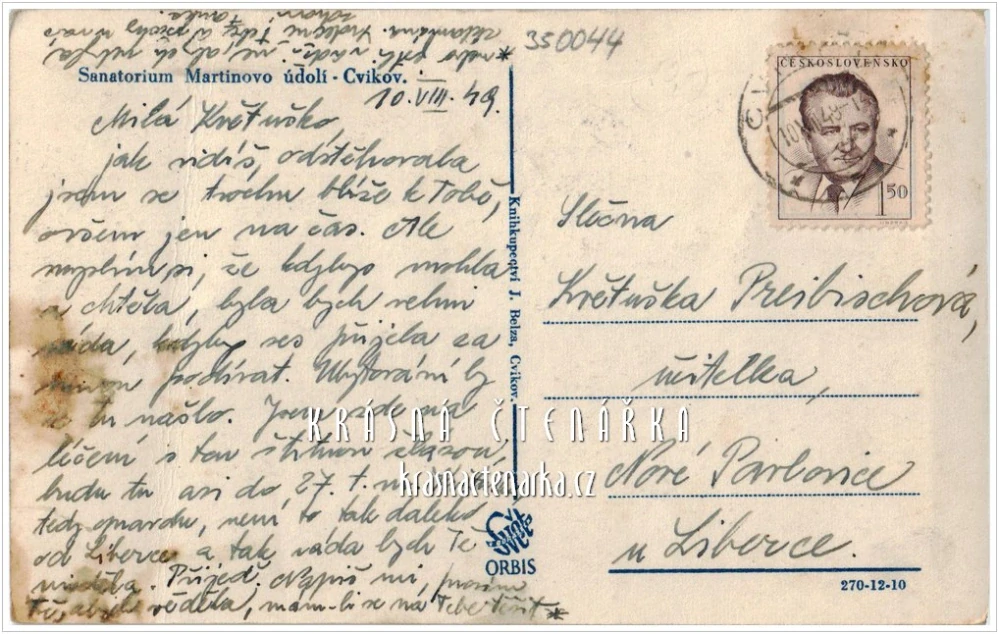 350044
Sanatorium Martinovo údolí - Cvikov.
10. VIII. 49.
Milá Květuško,
jak vidíš, odstěhovala
jsem se trochu blíže k Tobě,
ovšem jen na čas. Ale
myslím si, že kdybys mohla
a chtěla, byla bych velmi
ráda, kdyby ses přijela za
mnou podívat. Ubytování by
se tu našlo. Jsem zde na
léčení s tou štítnou žlázou,
budu tu asi do 27. t. m.
tedy opravdu, není to tak daleko
od Liberce a tak ráda bych Tě
viděla. Přijeď. Napiš mi, prosím
Tě, abych věděla, mám-li se na Tebe těšit *
* nebo
zklamána. Srdečně Tě a všechny u vás
zdraví
Knihkupectví J. Belza, Cvikov.
Svět
ORBIS
ČESKOSLOVENSKO
1 50
Slečna
Květuška Preibischová,
učitelka,
Nové Pavlovice
u Liberce.
270-12-10
KRÁSNÁ ČTENÁŘKA
krasnactenarka.cz